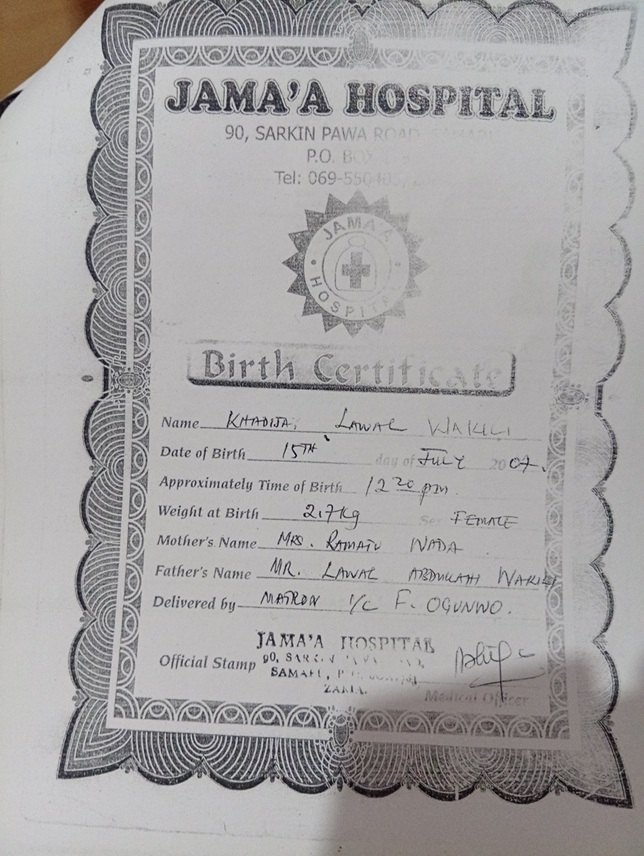 JAMA'A HOSPITAL
90, SARKIN PAWA ROAD, SAMARU
P.O. BO
Tel: 069-5504
JAMA'A
HOSPITAL
Birth Certificate
Name KHADIJA, LAWAL WAKILI
Date of Birth 15TH day of JULY 2007.
Approximately Time of Birth 12 20 pm.
Weight at Birth 2.7kg Sex FEMALE
Mother's Name MRS. RAMATU WADA
Father's Name MR. LAWAL ABDULLAHI WAKILI
Delivered by MATRON I/C F. OGUNWO.
JAMA'A HOSPITAL
Official Stamp 90,
SAMARU,
ZARIA.
Medical Officer